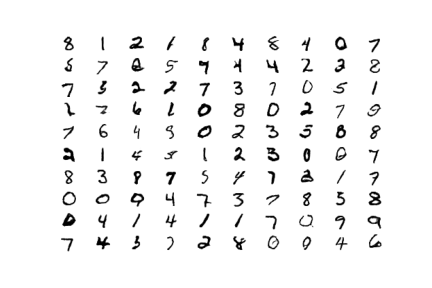 8 1 2 1 8 4 8 4 0 7
5 7 0 5 7 4 4 2 3 8
7 3 2 2 7 3 7 0 5 1
2 6 1 0 8 0 2 7 9
7 6 4 9 0 2 3 5 8 8
2 1 4 5 1 2 3 0 0 7
8 3 8 7 5 4 7 2 1 7
0 0 9 4 7 3 7 8 5 8
0 4 1 4 1 1 7 0 9 9
7 4 3 7 2 8 0 0 4 6